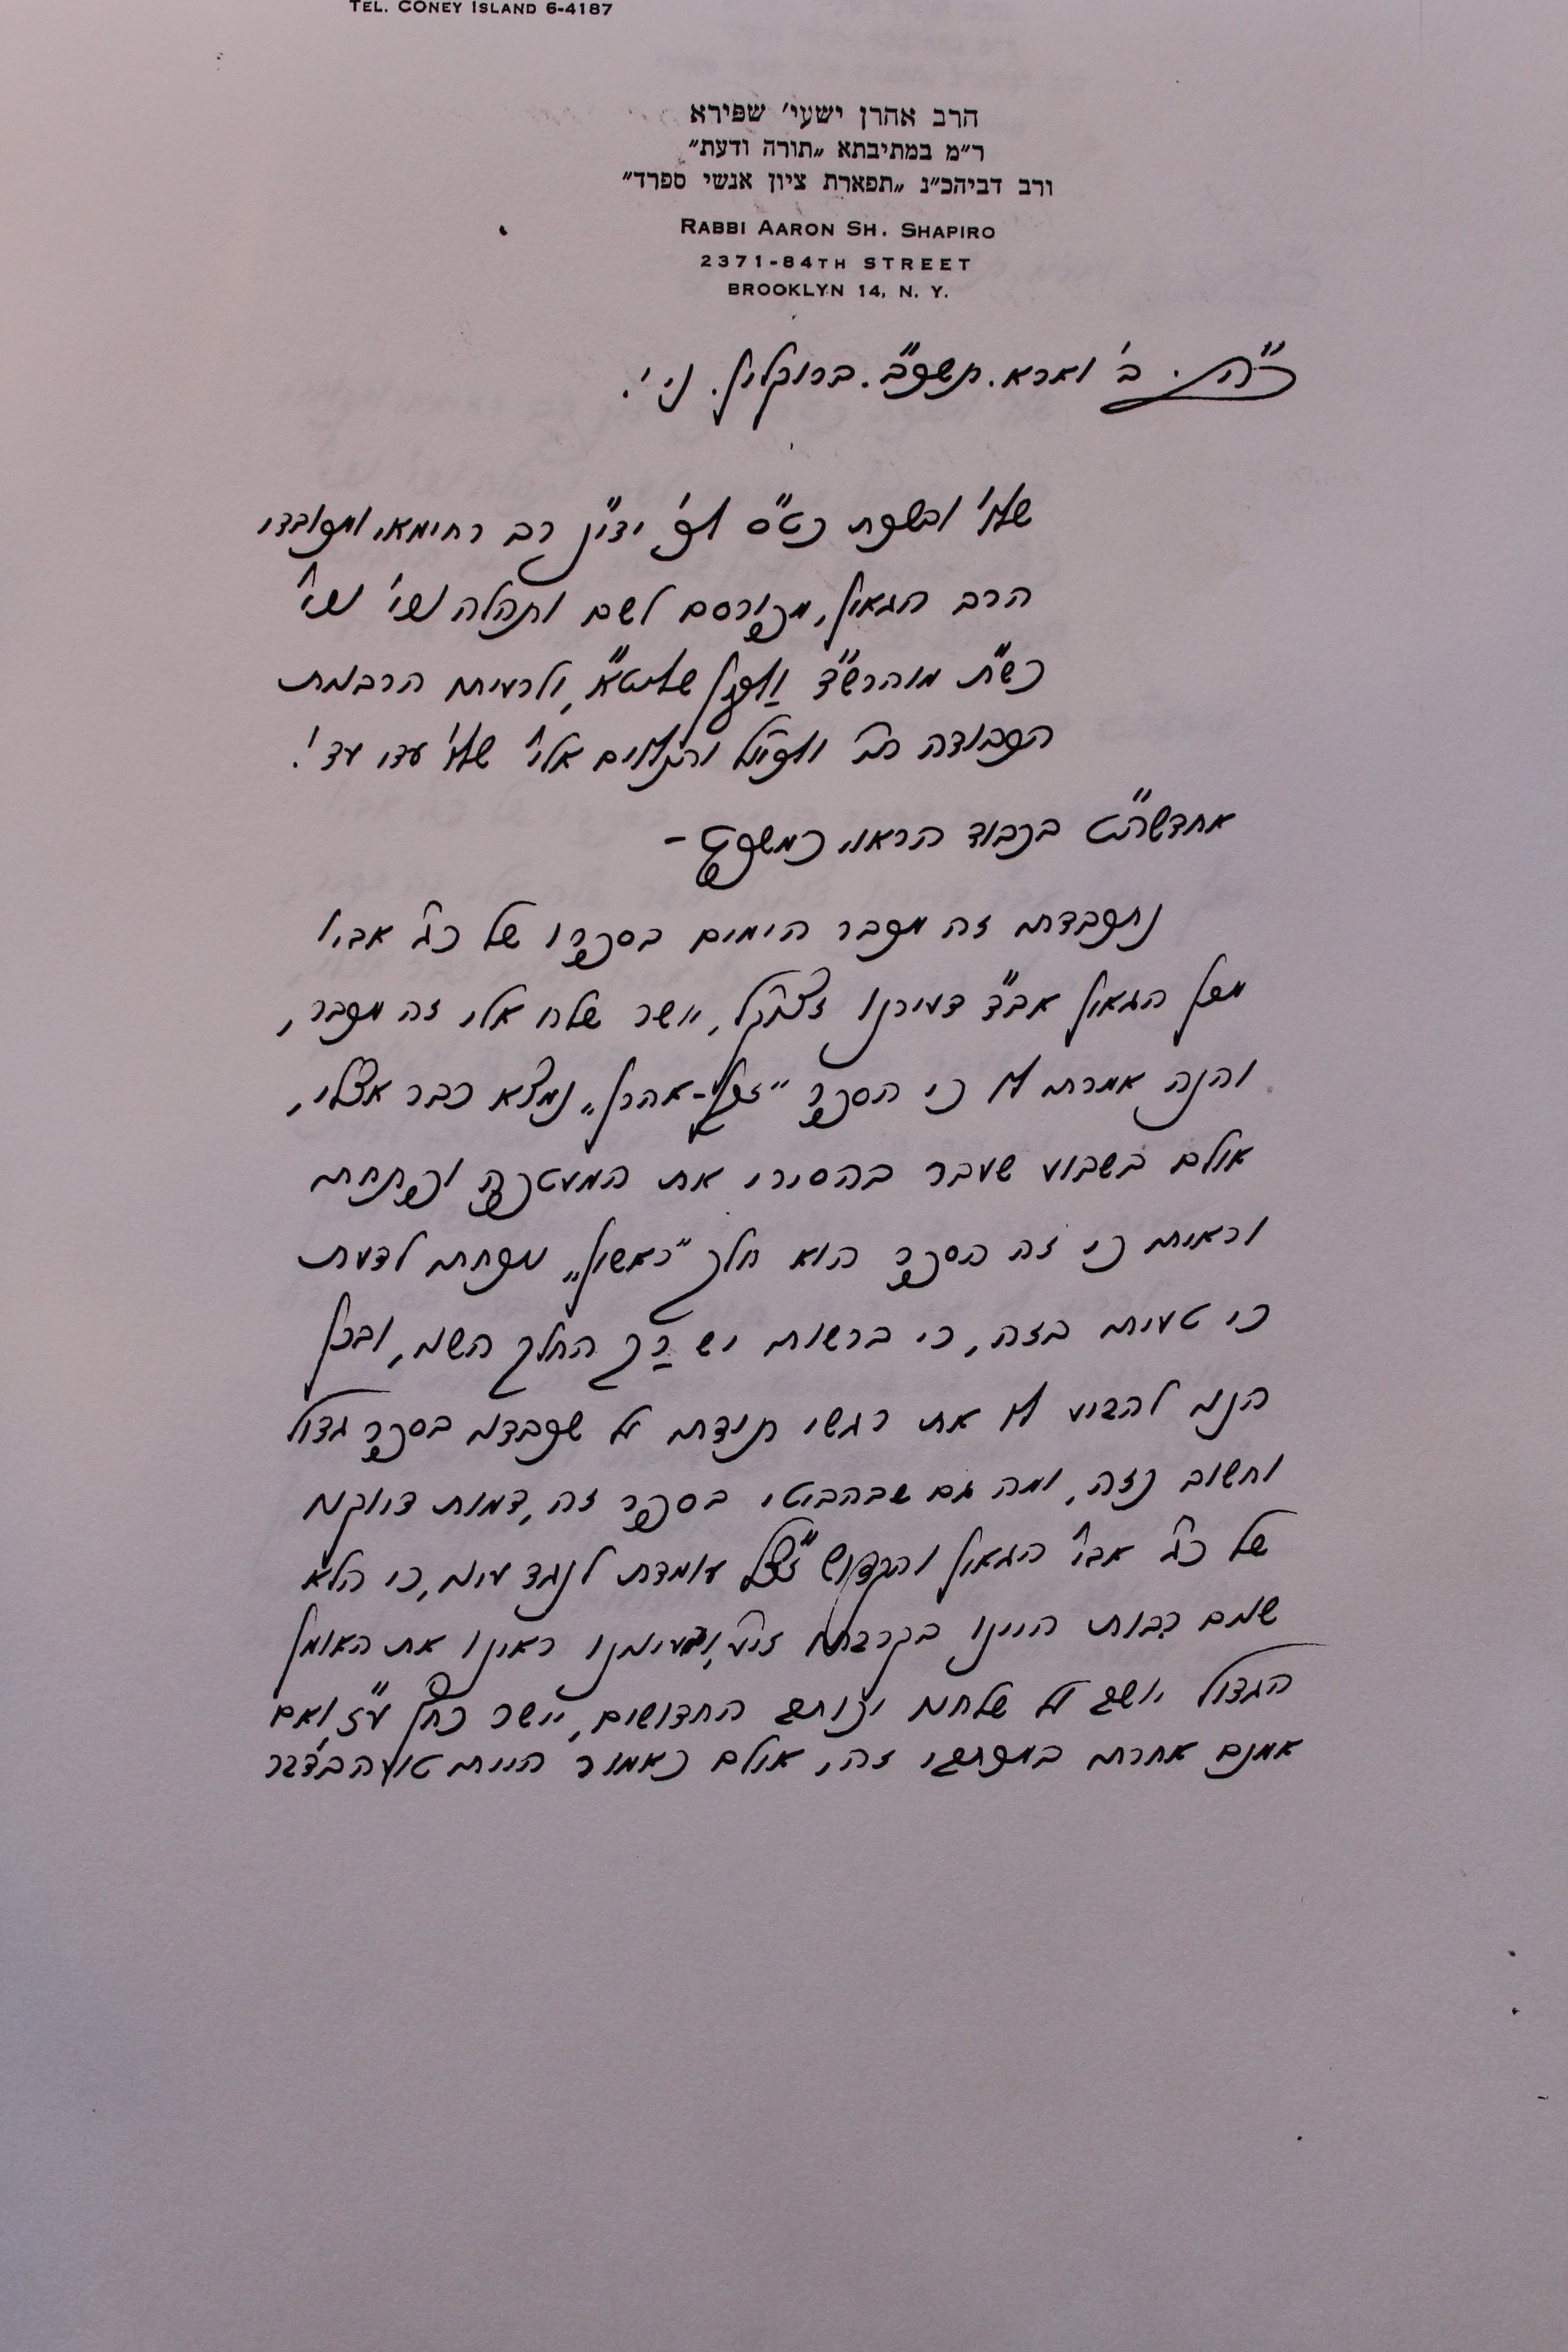 TEL. CONEY ISLAND 6-4187
הרב אהרן ישעי׳ שפירא
ר״מ במתיבתא „תורה ודעת״
ורב דביהכ״נ „תפארת ציון אנשי ספרד״
RABBI AARON SH. SHAPIRO
2371-84TH STREET
BROOKLYN 14, N. Y.
ב״ה. ב׳ וארא. תשכ״ב. ברוקלין. נ. י.
רב רחימאי
הרב הגאון, מפורסם לשם ותהלה
כש״ת מוהרש״ד שליט״א, ולרעיתו הרבנית
הכבודה עדי עד!
אחדשה״ט בכבוד הראוי כמשפט –
נתכבדתי זה מכבר הימים בספרו של כ״ג אביו
הגאון אב״ד דעירנו זצוק״ל, אשר שלח אלי זה מכבר,
והנה אמרתי לי כי הספר "אהרן" נמצא כבר אצלי,
אולם בשבוע שעבר בהסירי את המעטפה ופתחתי
וראיתי כי זה הספר הוא חלק "ראשון" נוכחתי לדעת
כי טעיתי בזה, כי ברשותי יש רק החלק השני, ובכן
הנני להביע לו את רגשי תודתי על שכבדני בספר גדול
וחשוב כזה, ומה גם שבהביטי בספר זה, דמות דיוקנו
של כ״ג אביו הגאון והקדוש זצ״ל עומדת לנגד עיני, כי הלא
שנים רבות היינו בקרבתו ובעינינו ראינו את האומן
הגדול יושב על שלחנו החדושים, יישר כחו ע״ז, ואם
אמנם אחרתי זה, אולם כאמור הייתי טועה בדבר